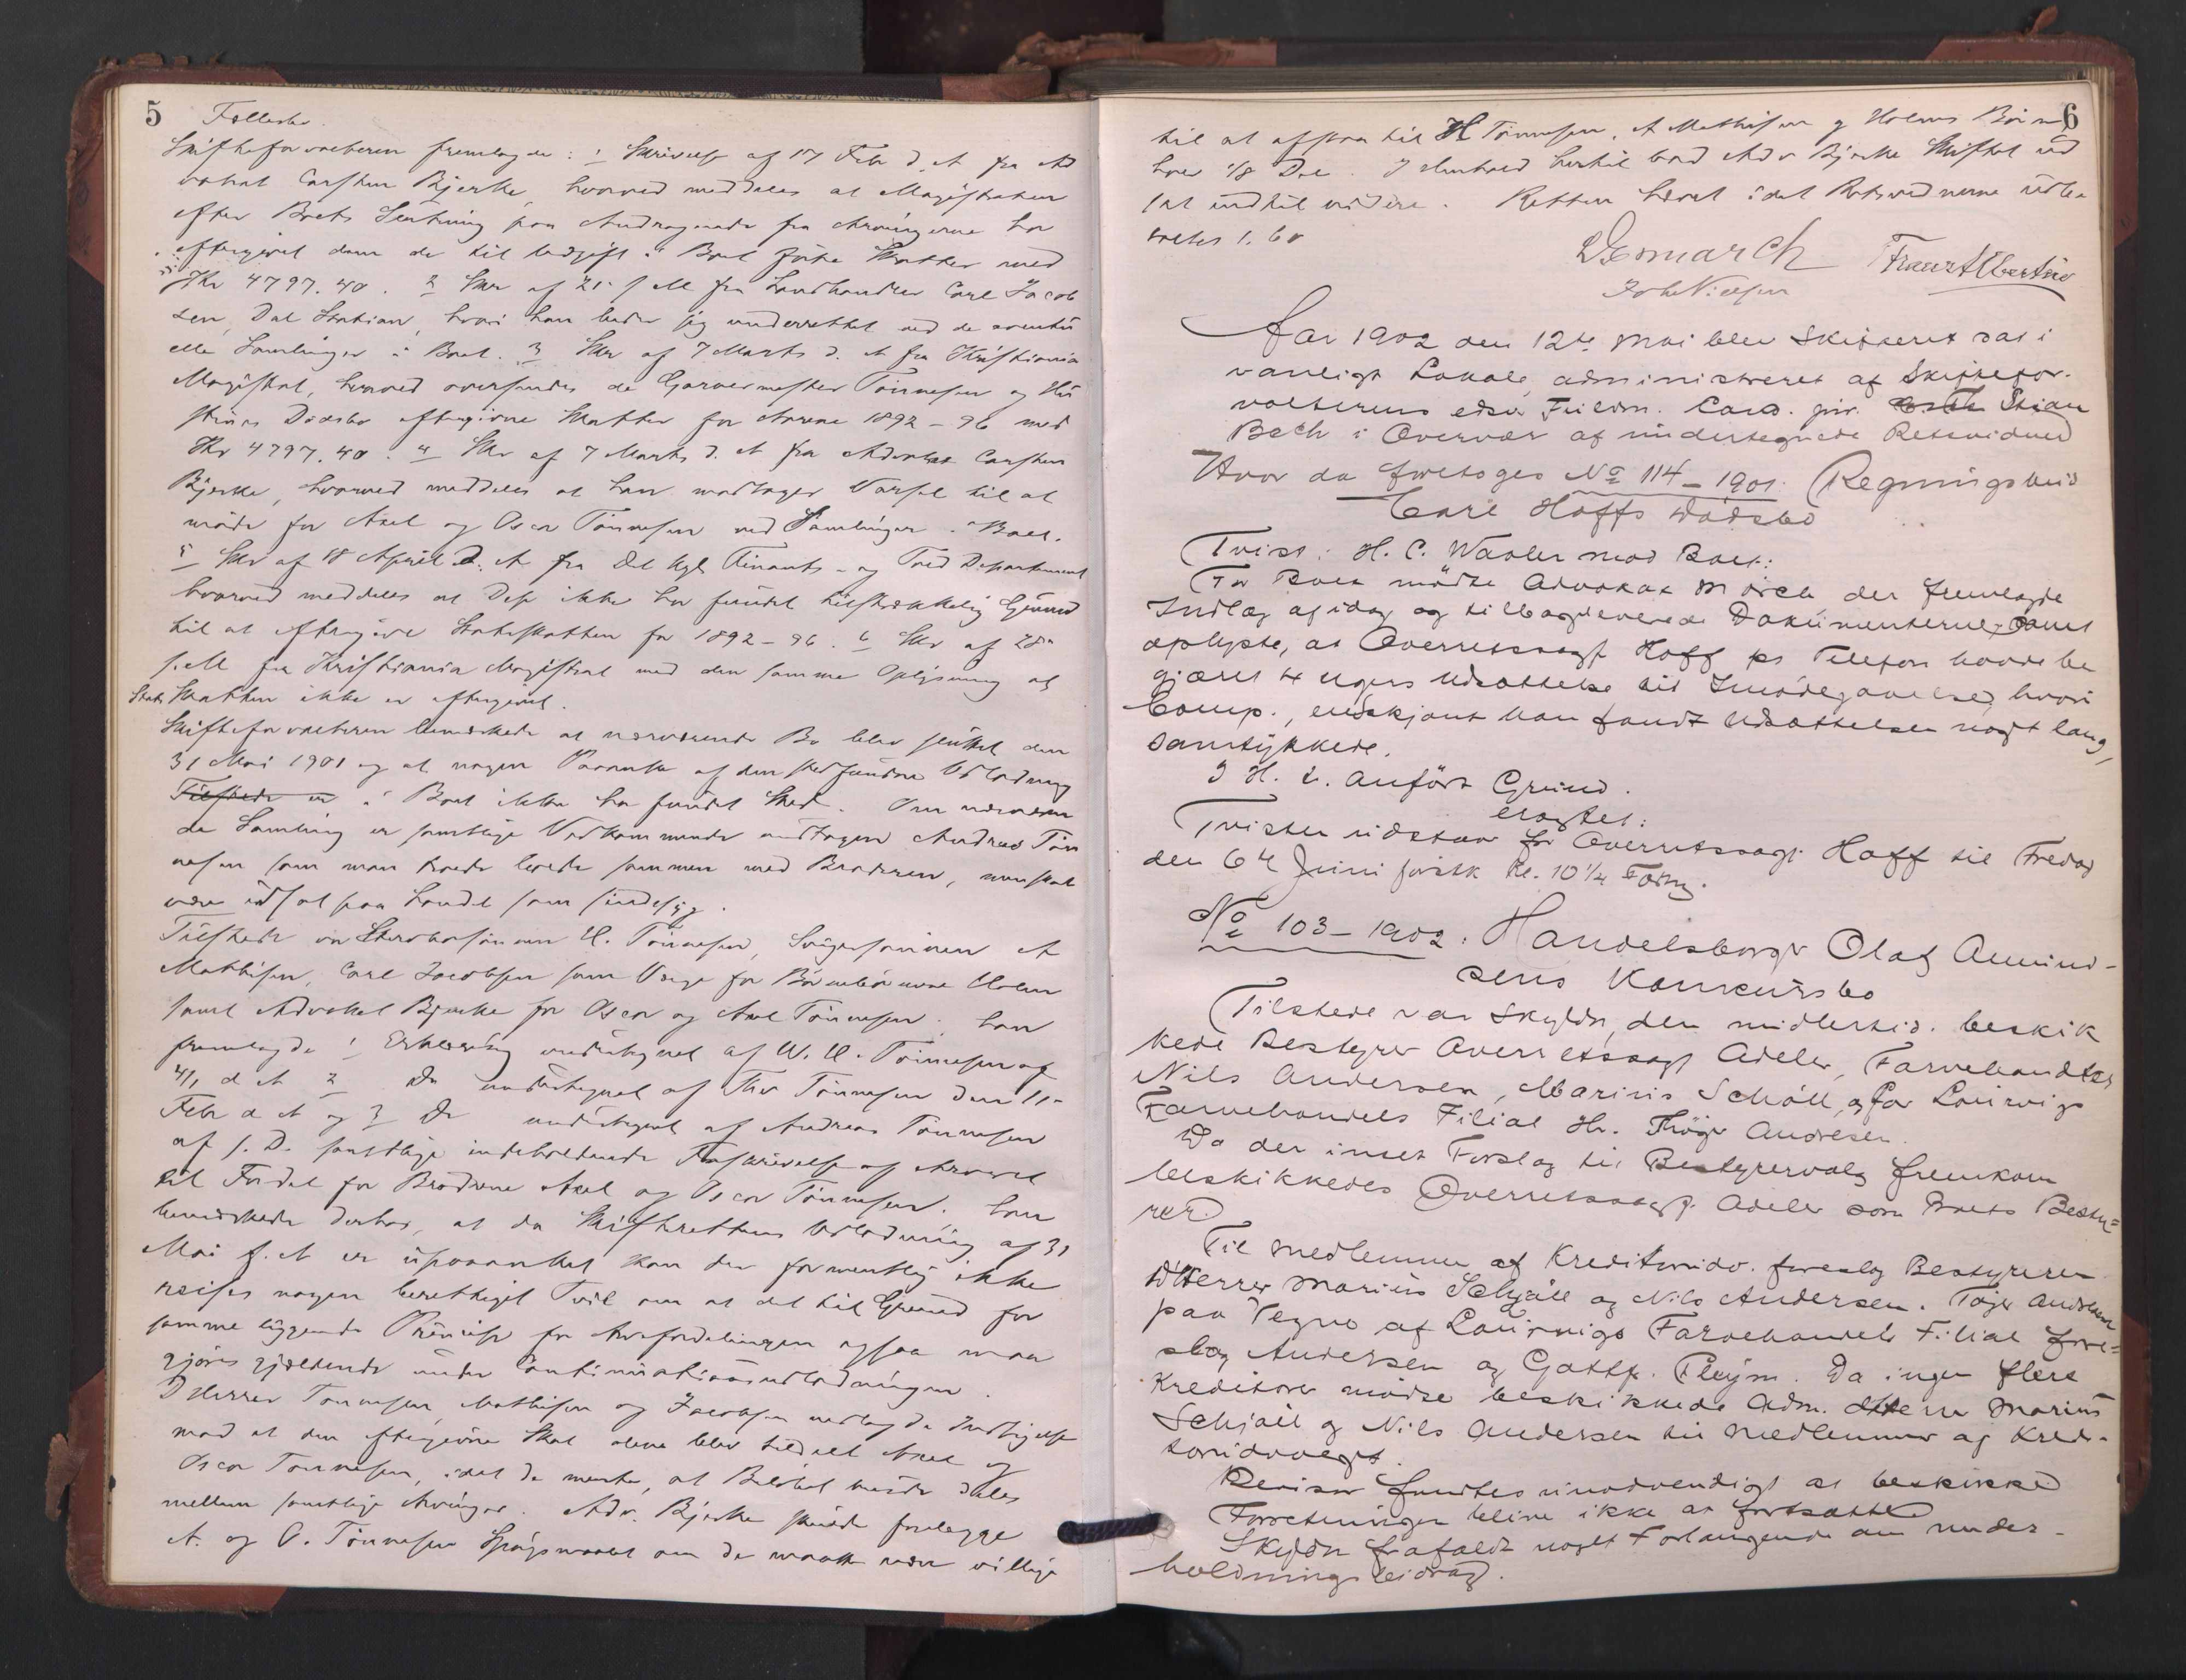 5 Fællesbo.
Skifteforvalteren fremlagde: 1 Skrivelse af 17 Febr d. A. fra Ad
vokat Carsten Bjerke, hvorved meddeles at Magistraten
efter Boets Henstilling paa Andragende fra Arvingerne har
eftergivet dem de til Udgift i Boet førte Skatter med
Kr 4797.40. 2 Skr af 21 s. M. fra Landhandler Carl Jacob
sen, Dal Station, hvori han beder sig underrettet ved de eventu
elle Samlinger i Boet. 3 Skr af 7 Marts d. A. fra Kristiania
Magistrat, hvorved oversendes de Garvermester Tønnesen og Hu
strues Dødsbo eftergivne Skatter for Aarene 1892-96 med
Kr 4797.40. 4 Skr af 7 Marts d. A. fra Advokat Carsten
Bjerke, hvorved meddeles at han modtager Varsel til at
møde for Axel og Oscar Tønnesen ved Samlinger i Boet.
5 Skr af 18 April d. A. fra Det Kgl. Finants- og Told Departement
hvorved meddeles at Dep. ikke har fundet tilstrækkelig Grund
til at eftergive Statsskatten for 1892-96. 6 Skr af 28
s. M. fra Kristiania Magistrat med den samme Oplysning at
Stats Skatten ikke er eftergivet.
Skifteforvalteren bemærkede at nærværende Bo blev sluttet den
31 Mai 1901 og at nogen Paaanke af den stedfundne Udlodning
Tilstede er i Boet ikke har fundet Sted. Om nærværen
de Samling er samtlige Vedkommende undtagen Andreas Tøn
nesen som man troede levede sammen med Broderen, men skal
være udsat paa Landet som sindssyg.
Tilstede var Sterbosønnen H. Tønnesen, Svigersønnen A
Mathisen, Carl Jacobsen som Værge for Børnebørnene Holm
samt Advokat Bjerke for Oscar og Axel Tønnesen. Han
fremlagde 1 Erklæring undertegnet af W. H. Tønnesen af
4/1 d A 2 Do undertegnet af Thv Tønnesen den 11
Febr d A og 3 Do undertegnet af Andreas Tønnesen
af s. D. samtlige indeholdende Fraskrivelse af Arveret
til Fordel for Brødrene Axel og Oscar Tønnesen. Han
bemærkede derhos, at da Skifterettens Udlodning af 31
Mai f. A. er upaaanket kan der formentlig ikke
reises nogen berettiget Tvil om at det til Grund for
samme liggende Princip for Arvefordelingen ogsaa maa
gjøres gjældende under Continuationsudlodningen.
D'Herrer Tønnesen, Mathisen og Jacobsen nedlagde Indsigelse
mod at den eftergivne Skat alene blev tildelt Axel og
Oscar Tønnesen, idet de mente, at Beløbet burde deles
mellem samtlige Arvinger. Adv. Bjerke skulde forelægge
A. og O. Tønnesen Spørgsmaalet om de maatte være villige
6
til at afstaa til H Tønnesen, A Mathisen og Holms Børn
hver 1/8 Del. I Henhold hertil bad Adv Bjerke Skiftet ud
sat indtil videre. Retten hævet idet Retsvidnerne udbe
taltes 1.60
Franz Albertsen
Joh Nielsen
Aar 1902 den 12te Mai blev Skifteret sat i
vanligt Lokale administreret af Skiftefor-
valterens edsv. Fuldm. Cand. jur. Stian
Bech i Overvær af undertegnede Retsvidner
Hvor da foretoges No 114-1901: Regningsbud
Carl Hoffs Dødsbo
Tvist: H. C. Waaler mod Boet:
For Boet mødte Advokat Mørch der fremlagde
Indlæg af idag og tilbageleverede Dokumenterne, samt
oplyste, at Overretssagf. Hoff pr Telefon havde be
gjæret 4 Ugers Udsættelse til Imødegaaelse, hvori
Comp., endskjønt han fandt Udsættelsen noget lang,
samtykkede.
I H. t. anført Grund.
eragtet:
Tvisten udstaar for Overretssagf. Hoff til Fredag
den 6te Juni førstk Kl. 10 1/4 Form.
No 103-1902: Handelsborgr Olaf Amund-
sens Konkursbo
Tilstede var Skyldn, den midlertid. beskik
kede Bestyrer Overretssagf Adeler, Farvehandler
Nils Andersen, Marius Schøll, og for Laurvigs
Farvehandels Filial Hr. Thøger Andresen.
Da der intet Forslag til Bestyrervalg fremkom
beskikkedes Overretssagf. Adeler som Boets Besty-
rer.
Til Medlemmer af Kreditorudv. foreslog Bestyreren
D'Herrer Marius Schjøll og Nils Andersen. Tøger Andresen
paa Vegne af Laurvigs Farvehandels Filial fore-
slog Andersen og Gottfr. Fleym. Da ingen flere
Kreditorer mødte beskikkede Adm. dHerrer Marius
Schjøll og Nils Andersen til Medlemmer af Kredi-
torudvalget.
Revisor fandtes unødvendigt at beskikke
Forretningen bliver ikke at fortsætte
Skyldn frafaldt noget Forlangende om under-
holdningsbidrag.